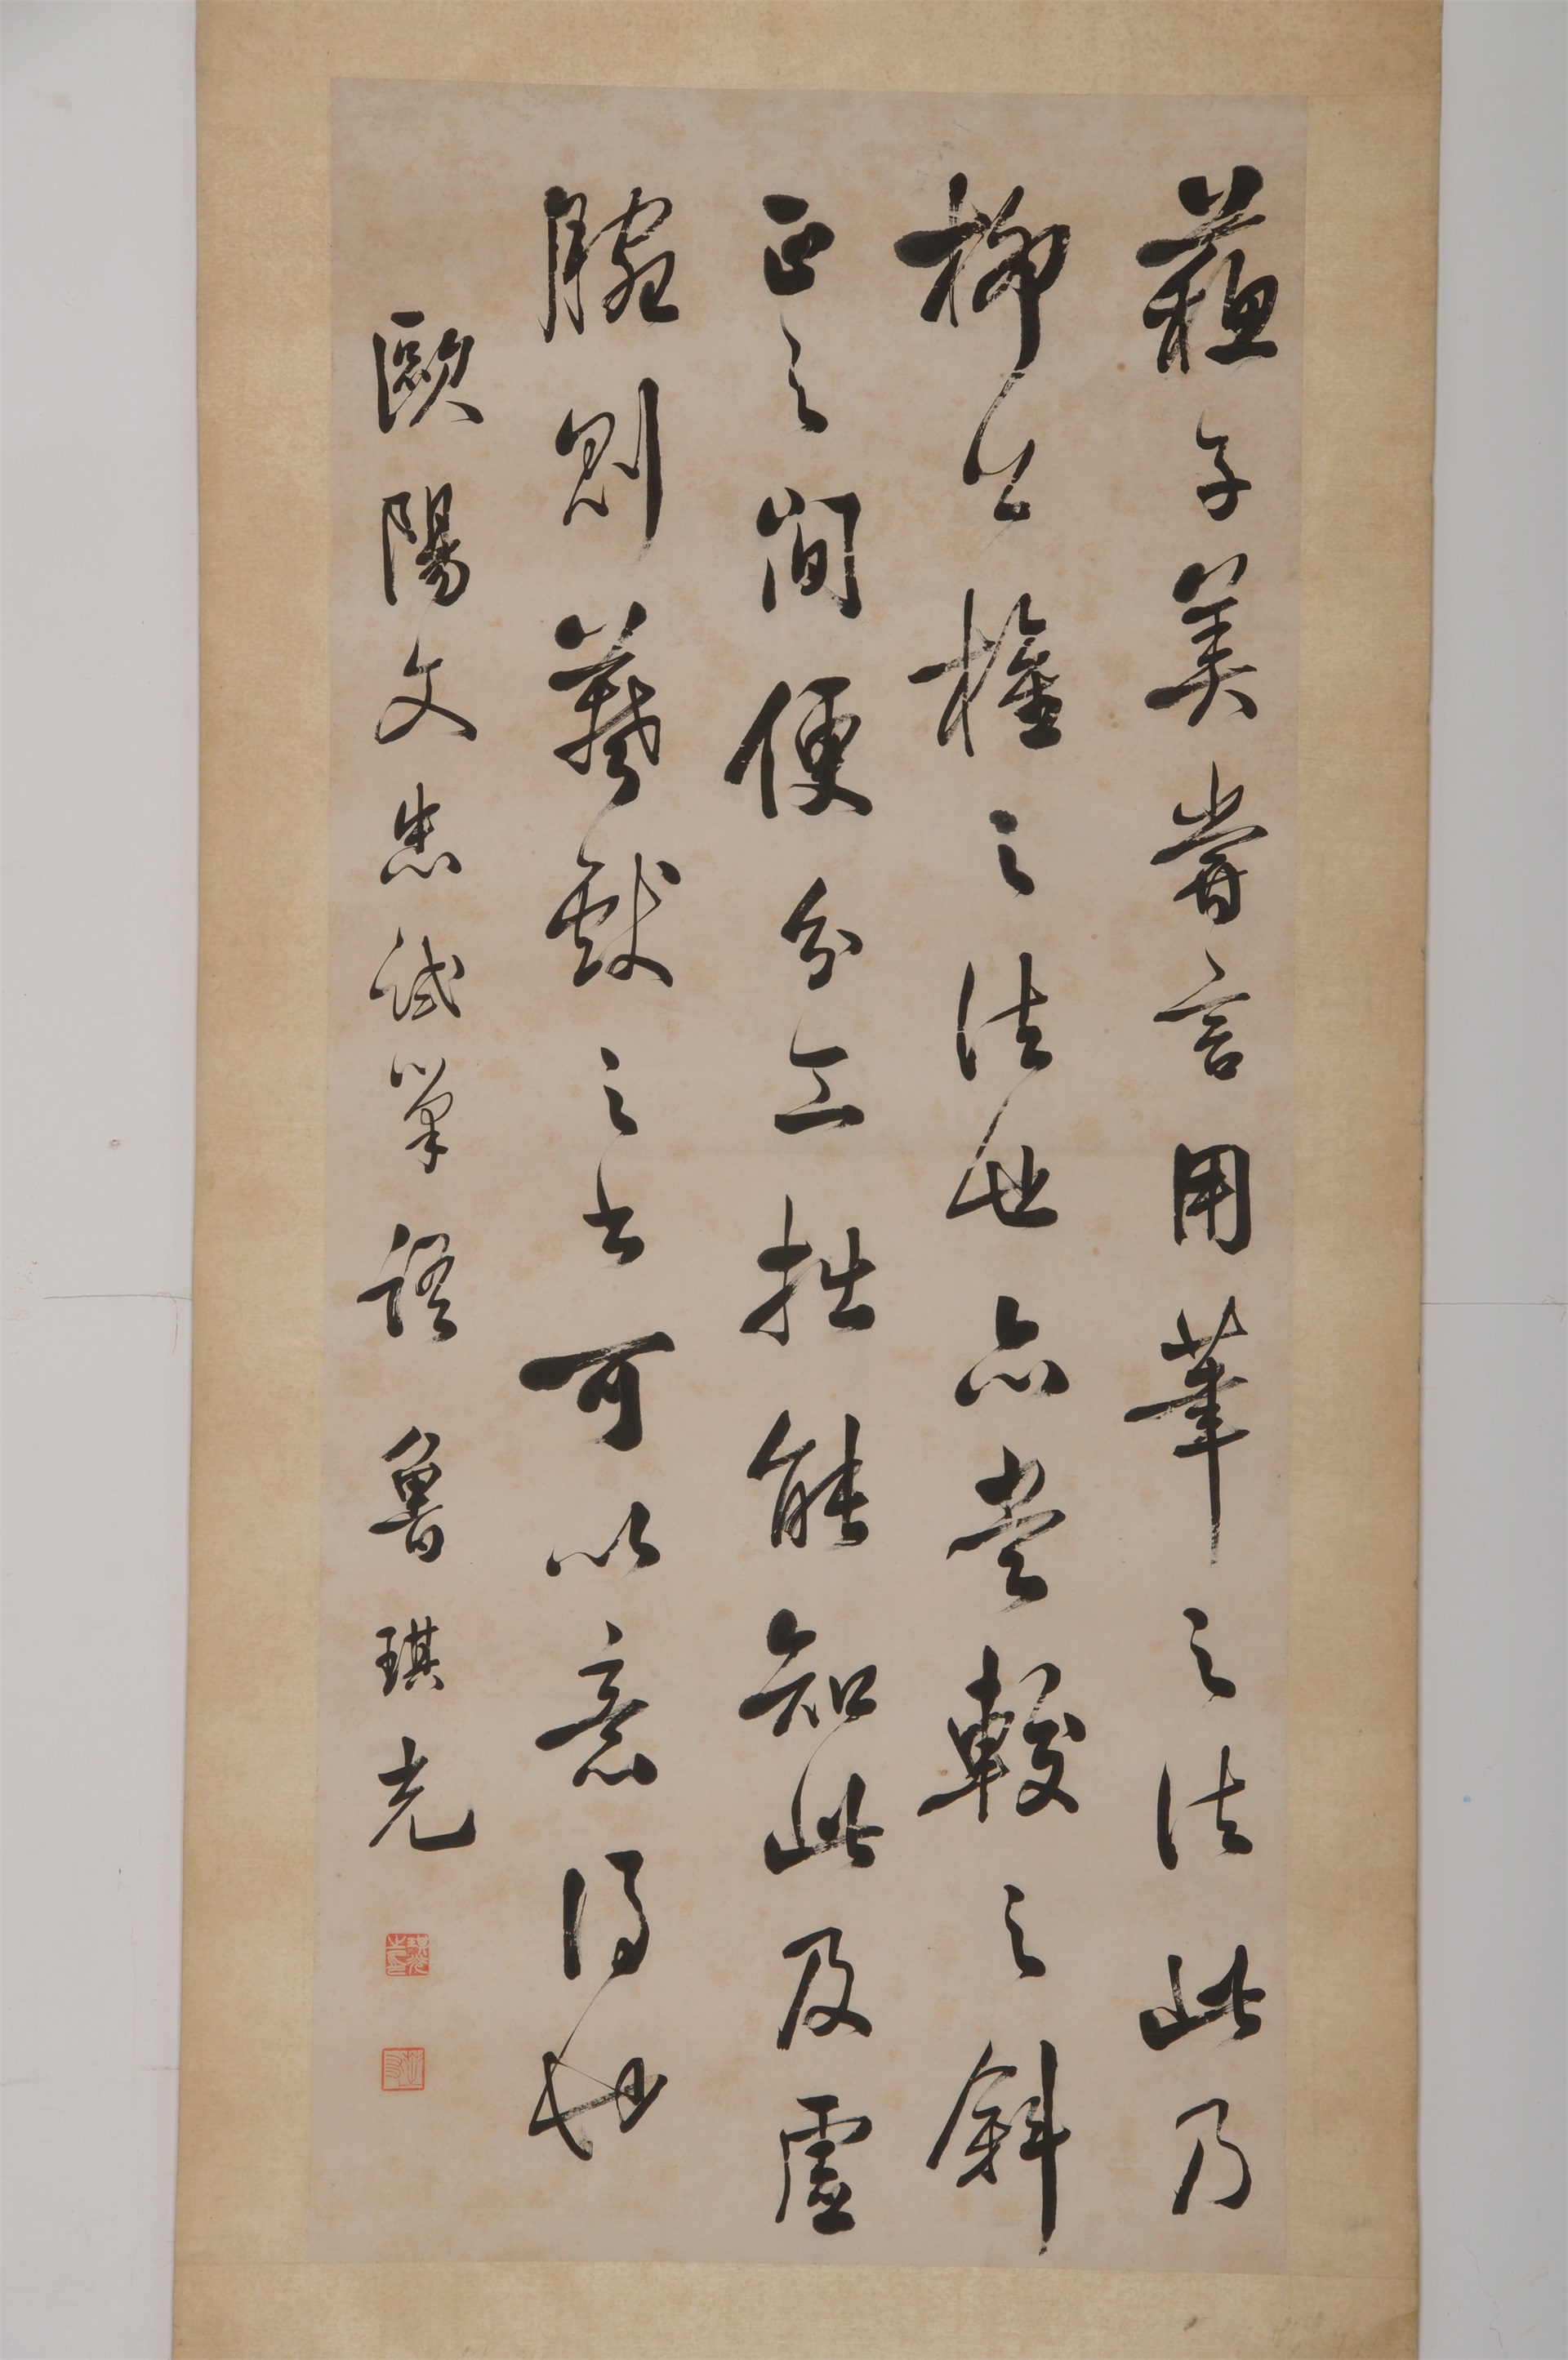 蘇子美嘗言用筆之法此乃
柳公權之法也亦嘗較之斜
正之間便分工拙能知此及虛
腕則羲獻之書可以意得也
歐陽文忠試筆語 魯琪光